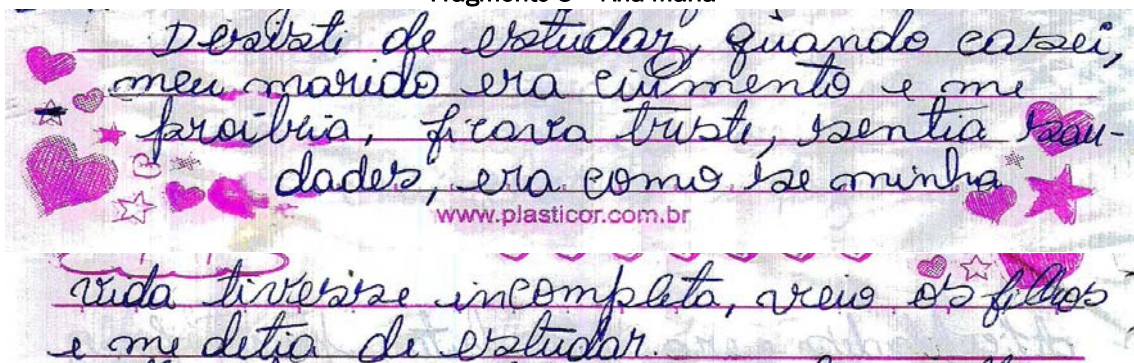 Desisti de estudar, quando casei,
meu marido era ciumento e me
proibia, ficava triste, sentia sau-
dades, era como se minha
www.plasticor.com.br
vida tivesse incompleta, veio os filhos
e me detia de estudar.